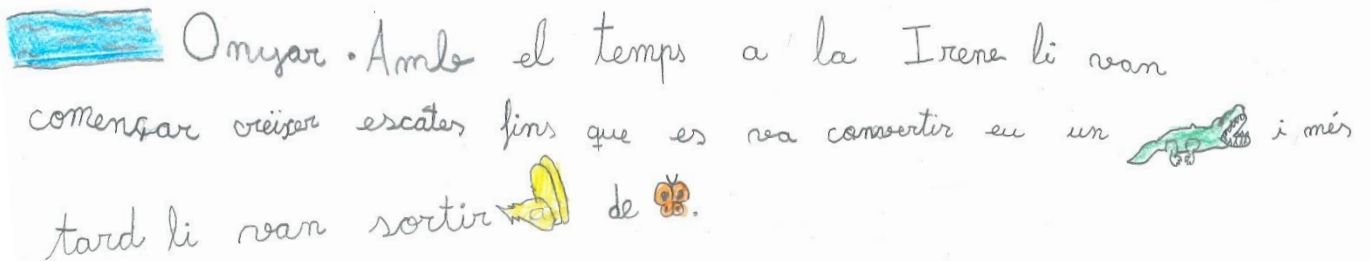 Onyar. Amb el temps a la Irene li van
començar crëixer escates fins que es va convertir eu un i més
tard li van sortir de .